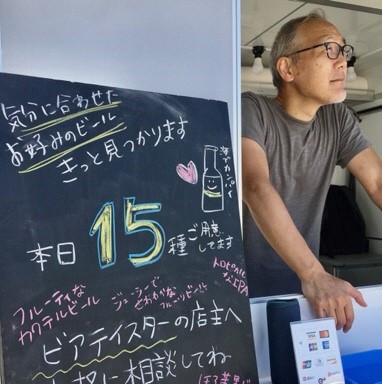 気分に合わせた
お好みのビール
きっと見つかります
海でカンパイ
本日 15 種 ご用意してます
フルーティな
カクテルビール
ジューシーで
さわやかな
フルーツビール!!
ビアテイスターの店主へ
軽に相談してね
VISA